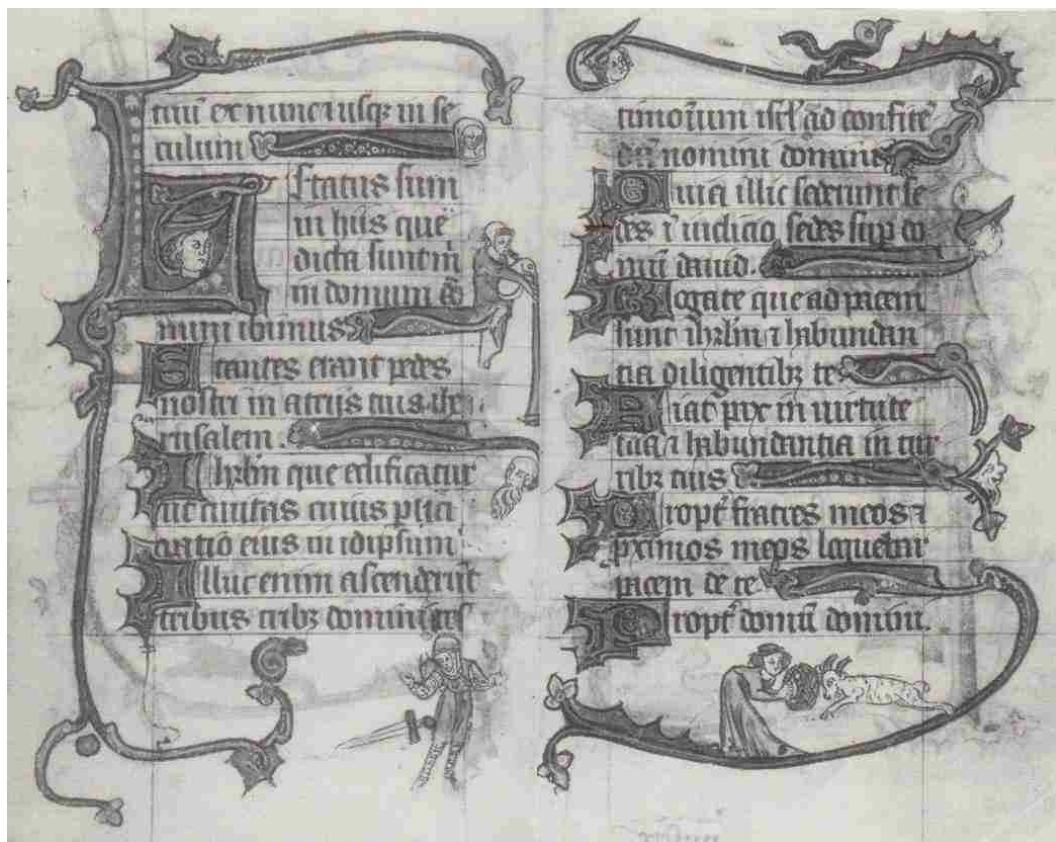 tuũ ex nunc usqꝫ in se
culum
Letatus sum
in hiis que
dicta sunt m̃
in domum do
mini ibimus
Stantes erant pedes
nostri in atriis tuis ihe
rusalem.
Ihrl̃m que edificatur
ut ciuitas cuius ptici
patio eius in idipsum
Illuc enim ascenderũt
tribus tribꝫ domini tes
timonium isrl̃ ad confitẽ
dũ nomini domini
Quia illic sederunt se
des ĩ iudicio sedes sup do
mũ dauid.
Rogate que ad pacem
sunt ihrl̃m ⁊ habundan
tia diligentibꝫ te
Fiat pax in uirtute
tua ⁊ habundantia in tur
ribꝫ tuis
Propt̃ fratres meos ⁊
pximos meos loquebar
pacem de te
Propt̃ domũ domini.